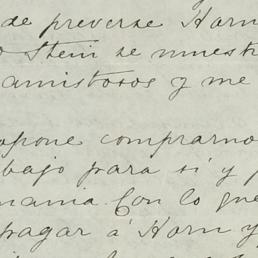 de preverse Horn
Stein se muestr
amistosos y me
apone comprarno
bajo para sí y p
mania Con lo que
pagar á Horn y